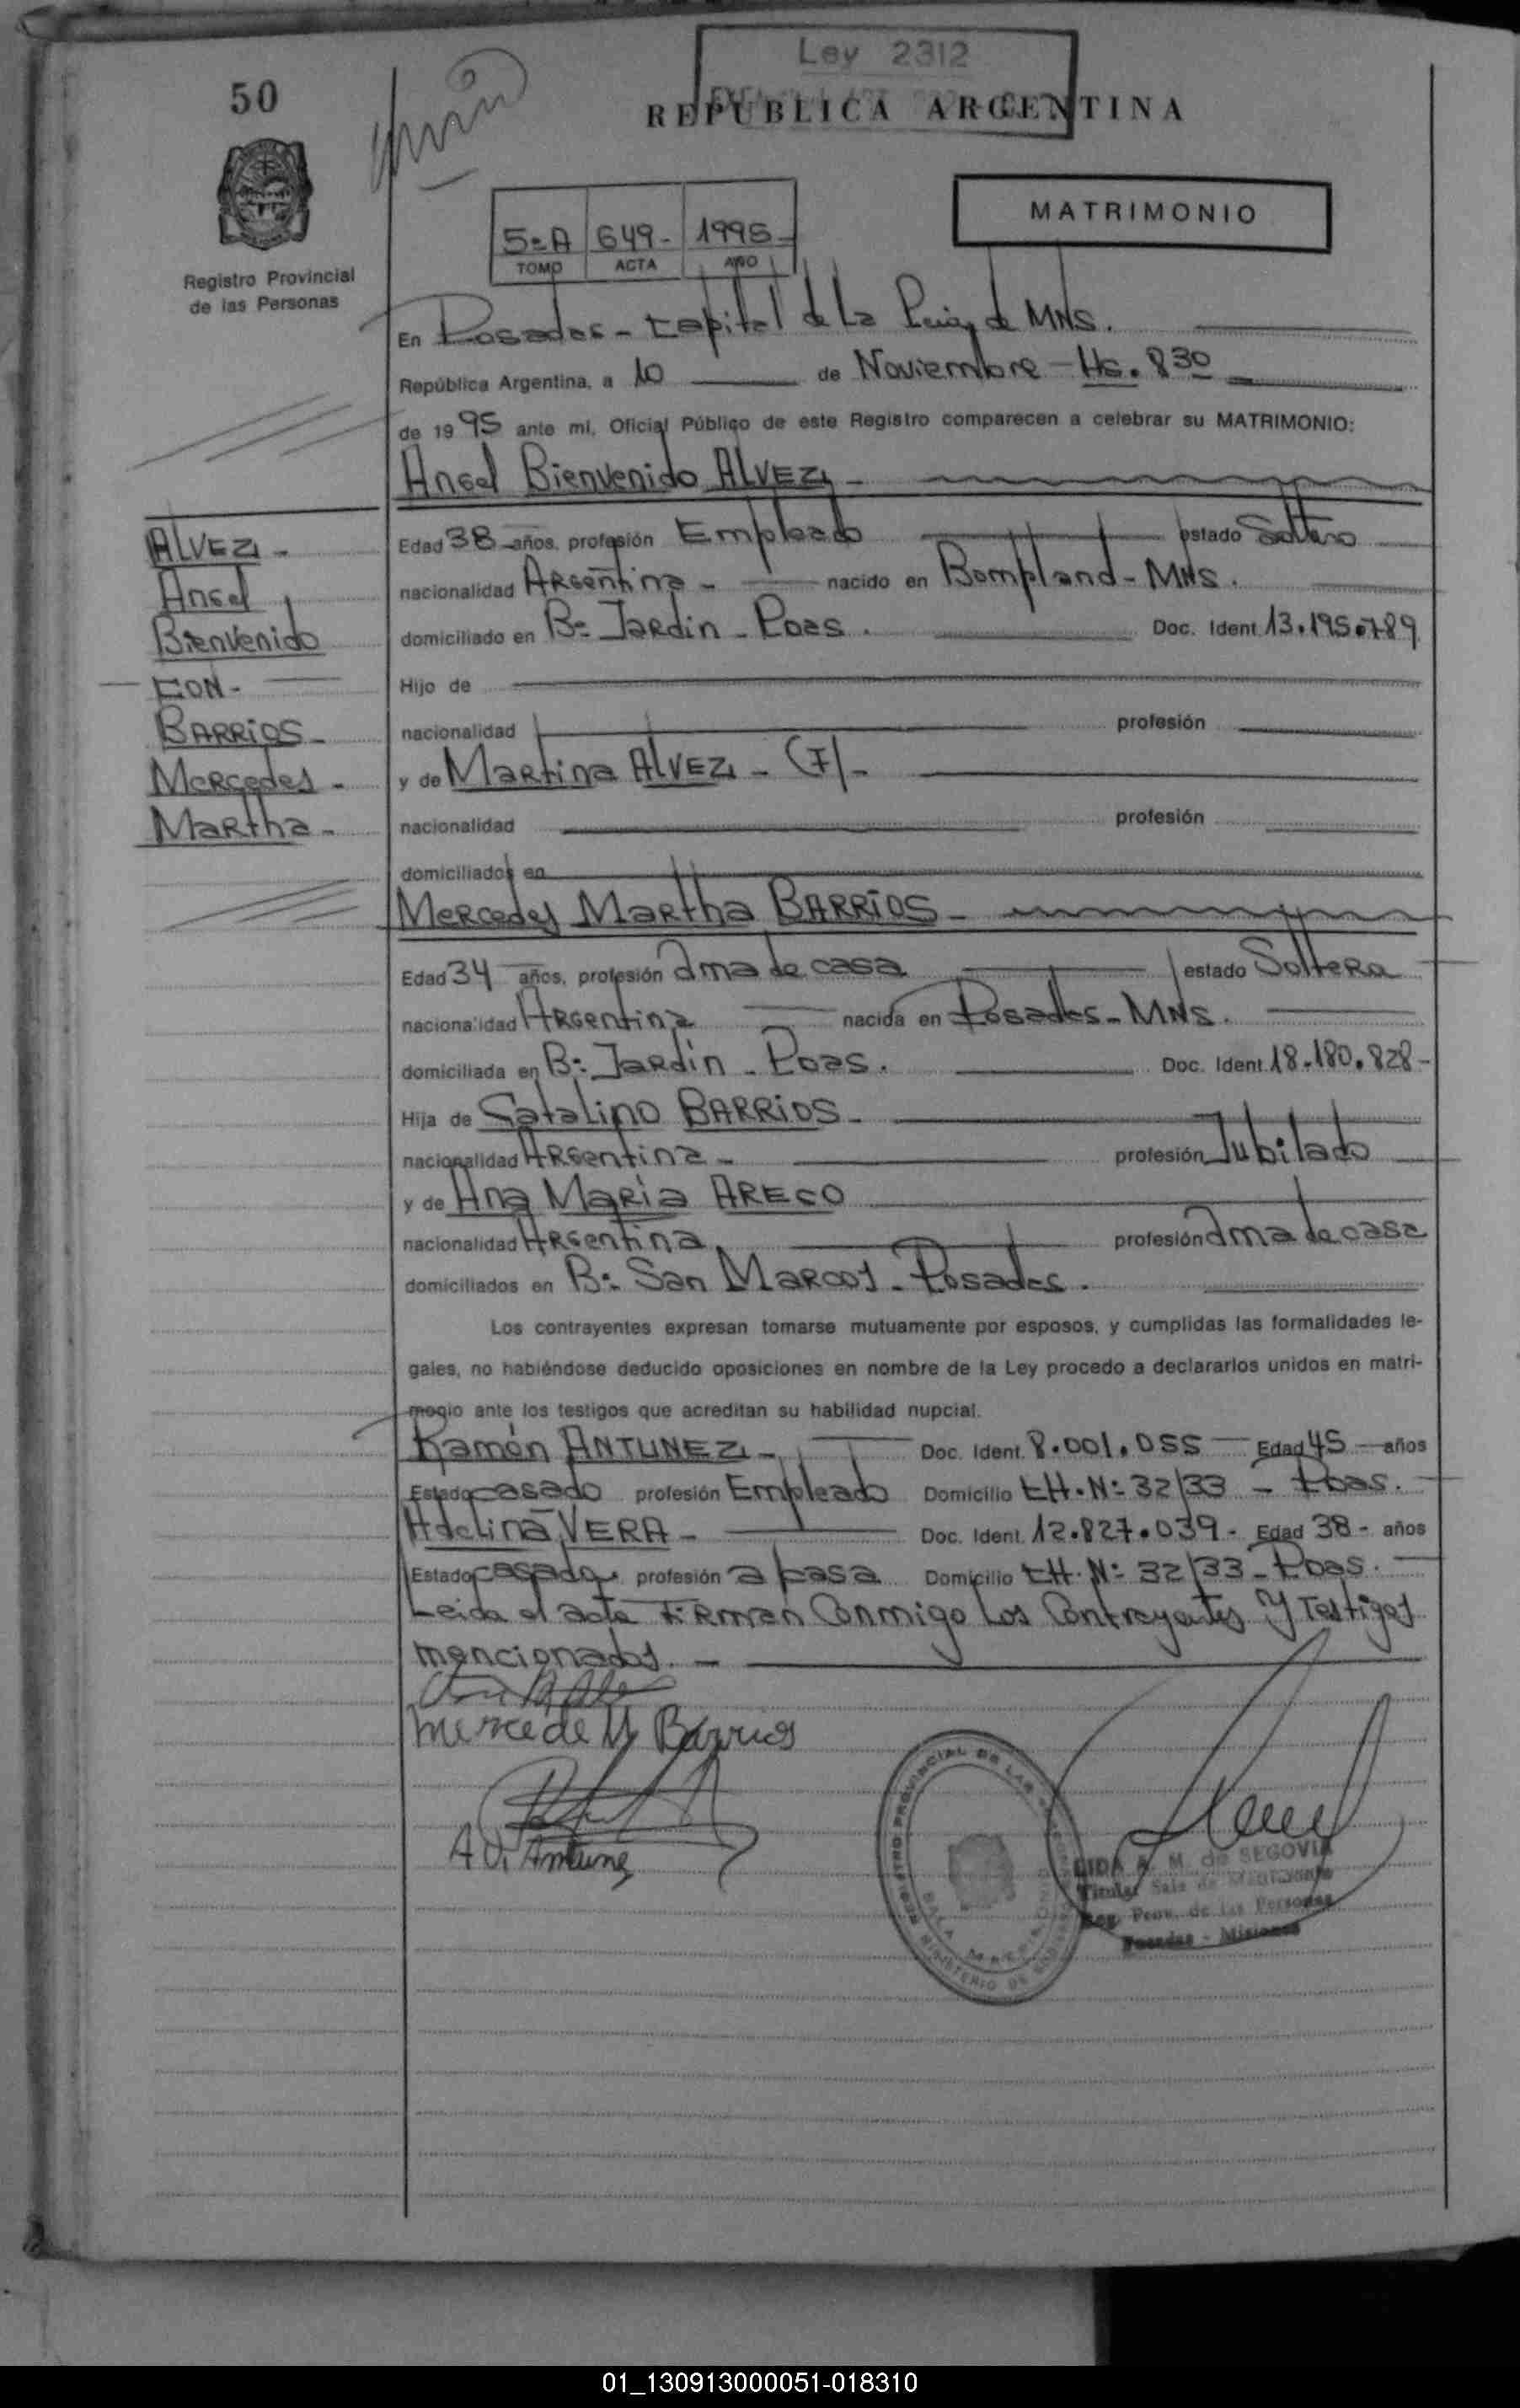 Ley 2312
50
REPUBLICA ARGENTINA
MATRIMONIO
5=A 649- 1995-
TOMO ACTA AÑO
Registro Provincial
de las Personas
En Posadas - Capital de la Pcia, de MNS.
República Argentina, a 10 de Noviembre - Hs. 8 30
de 19 95 ante mí, Oficial Público de este Registro comparecen a celebrar su MATRIMONIO:
Angel Bienvenido ALVEZ -
ALVEZ -
Angel
Bienvenido
CON -
BARRIOS -
Mercedes -
Martha -
Edad 38 años, profesión Empleado estado Soltero
nacionalidad Argentina - nacido en Bompland - MNS.
domiciliado en B= Jardin - Poas. Doc. Ident. 13.195.789
Hijo de
nacionalidad profesión
y de Martina ALVEZ - (F) -
nacionalidad profesión
domiciliados en
Mercedes Martha BARRIOS -
Edad 34 años, profesión Ama de casa estado Soltera
nacionalidad Argentina nacida en Posadas - MNS.
domiciliada en B= Jardin - Poas. Doc. Ident. 18.180.828 -
Hija de Catalino BARRIOS -
nacionalidad Argentina - profesión Jubilado
y de Ana Maria ARECO
nacionalidad Argentina profesión Ama de casa
domiciliados en B= San Marcos - Posadas.
Los contrayentes expresan tomarse mutuamente por esposos, y cumplidas las formalidades le-
gales, no habiéndose deducido oposiciones en nombre de la Ley procedo a declararlos unidos en matri-
monio ante los testigos que acreditan su habilidad nupcial.
Ramón ANTUNEZ - Doc. Ident. 8.001.055 Edad 45 años
Estado casado profesión Empleado Domicilio CH. N= 32/33 - Poas.
Adelina VERA - Doc. Ident. 12.827.039 - Edad 38 - años
Estado casado profesión a casa Domicilio CH. N= 32/33 - Poas.
Leida el acta Firman Conmigo Los Contrayentes Y Testigos
mencionados. -
Mercede M Barrios
A V. Antune
REGISTRO PROVINCIAL DE LAS PERSONAS
SALA
MINISTERIO DE
A. M. de SEGOVIA
Titular Sala de Matrimonio
Reg. Prov. de las Personas
Posadas - Misiones
01_130913000051-018310